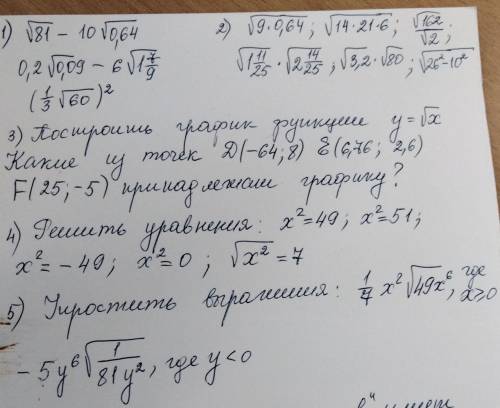 1) √81 − 10√0,64
0,2√0,09 − 6√1 7/9
(1/3 √60)²
2) √9·0,64; √14·21·6; √162/√2;
√1 11/25 · √2 14/25; √3,2 · √80; √26²−10²
3) Построить график функции y=√x
Какие из точек D(−64; 8) E(6,76; 2,6)
F(25; −5) принадлежит графику?
4) Решить уравнения: x²=49; x²=51;
x²=−49; x²=0; √x²=7
5) Упростить выражения: 1/7 x² √49x⁶, где x≥0
−5y⁶ √1/81y², где y<0